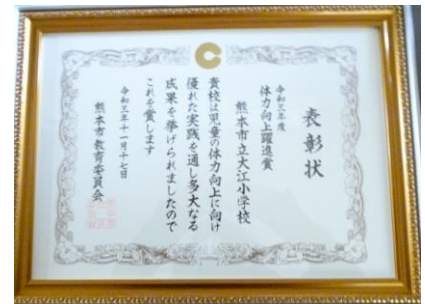 表彰状
令和三年度
体力向上躍進賞
熊本市立大江小学校
貴校は児童の体力向上に向け
優れた実践を通し多大なる
成果を挙げられましたので
これを賞します
令和三年十一月十七日
熊本市教育委員会